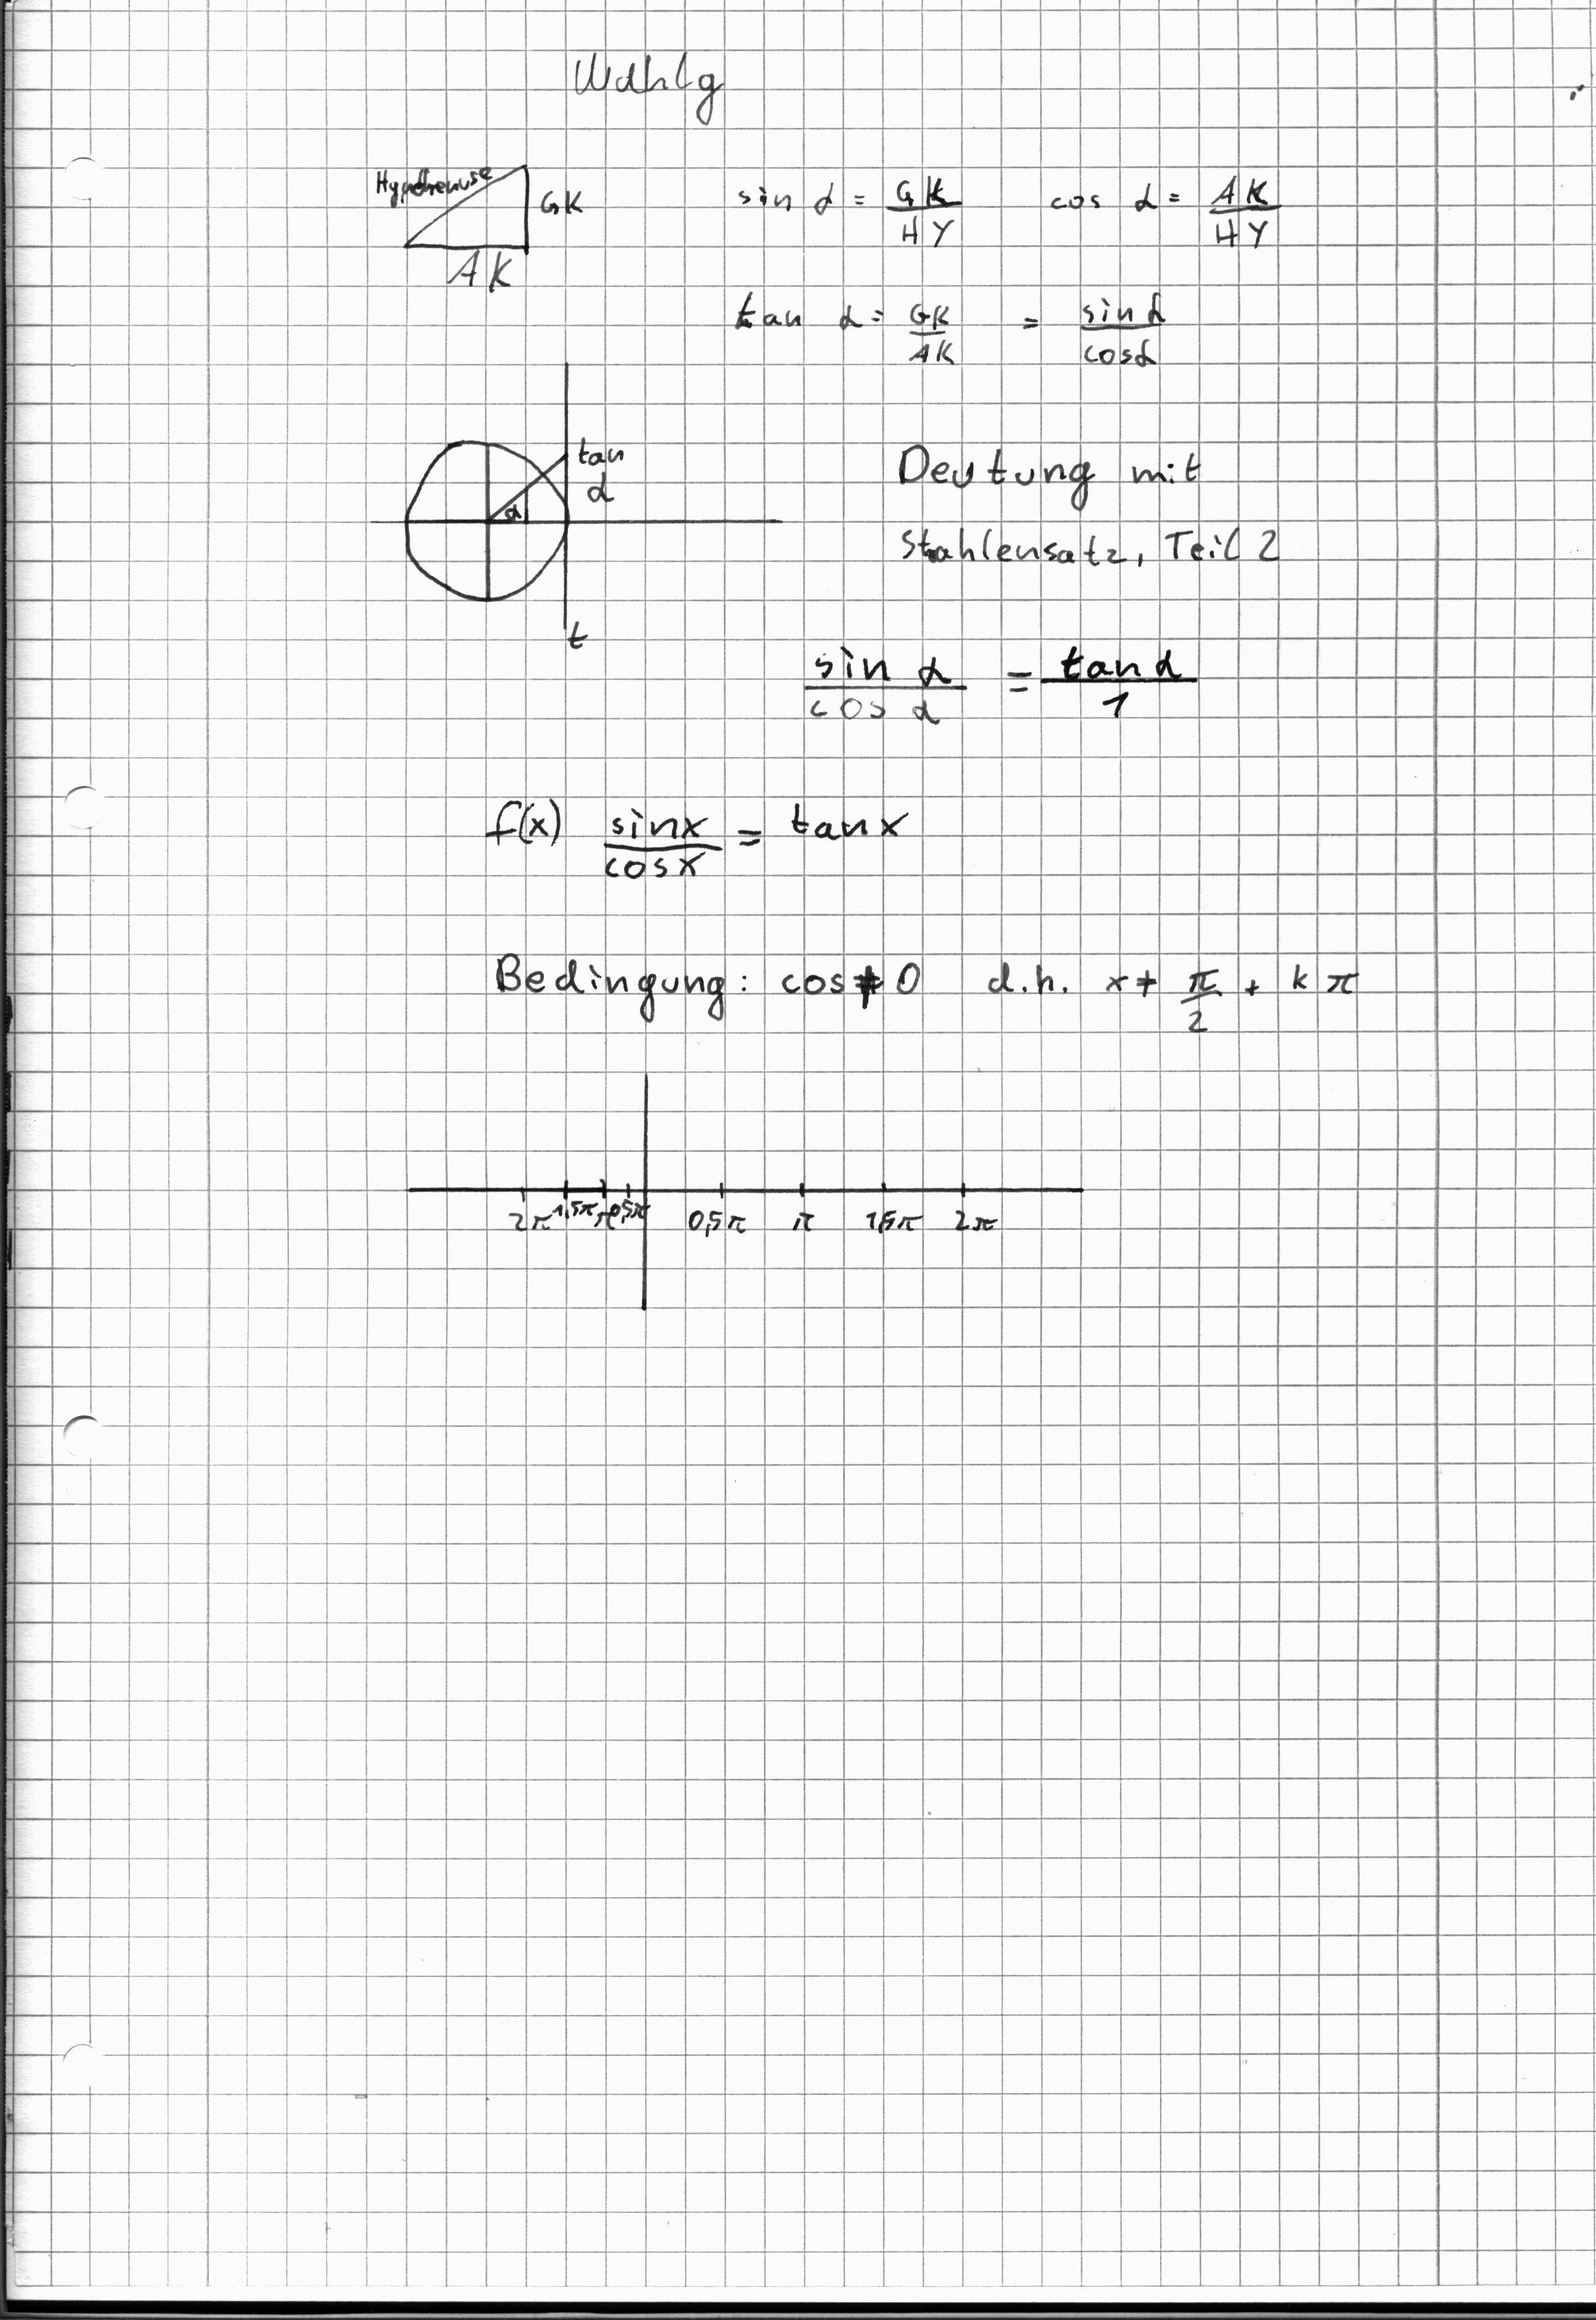 Wdhlg
Hypothenuse
GK
AK
sin α = GK/HY cos α = AK/HY
tan α = GK/AK = sin α/cos α
tan α
α
t
Deutung mit
Strahlensatz, Teil 2
sin α/cos α = tan α/1
f(x) sinx/cosx = tanx
Bedingung: cos ≠ 0 d.h. x ≠ π/2 + k π
2π 1,5π π 0,5π 0,5π π 1,5π 2π